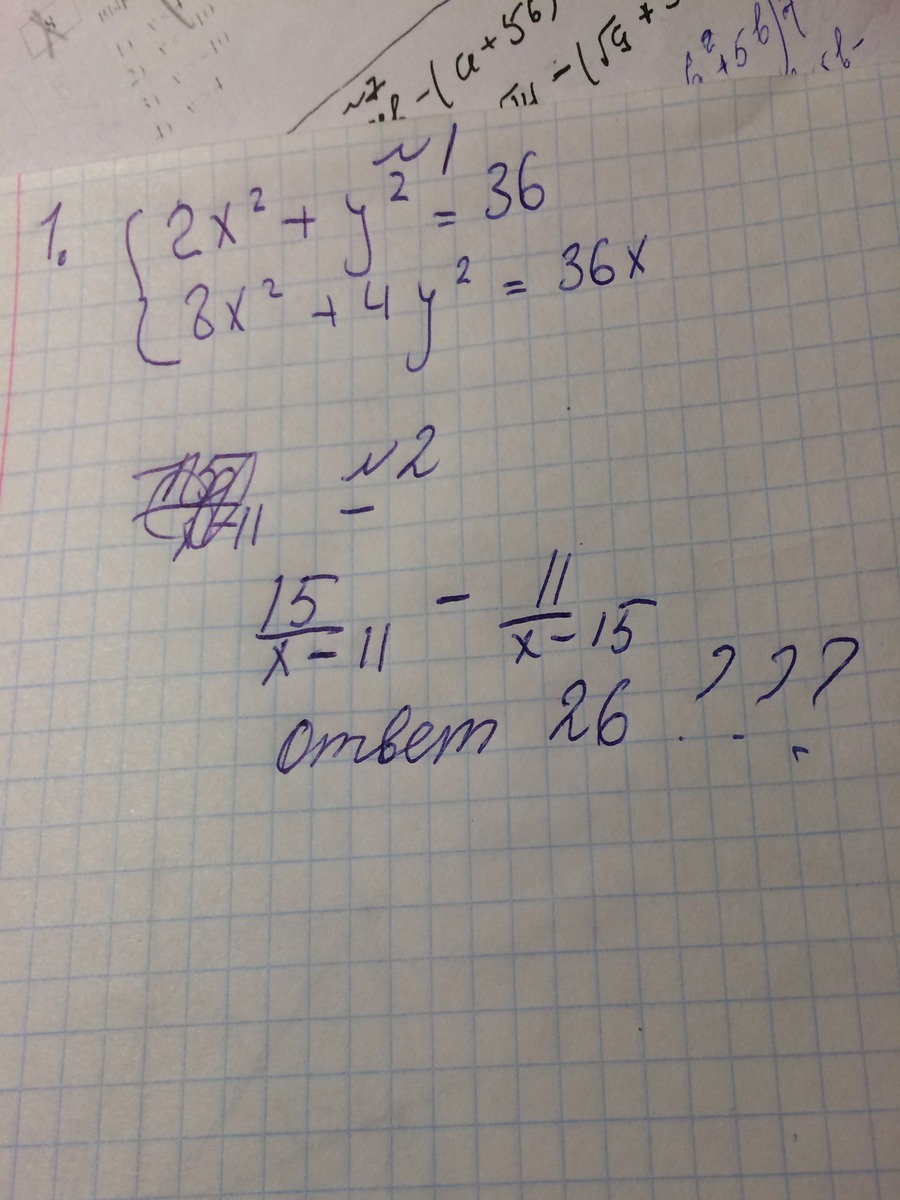 №7
- (a + 5b)
- (√a +
b² + 5b)
№1
1. { 2x² + y² = 36
8x² + 4y² = 36x
№2
-
15/(x - 11) - 11/(x - 15)
ответ 26 ???